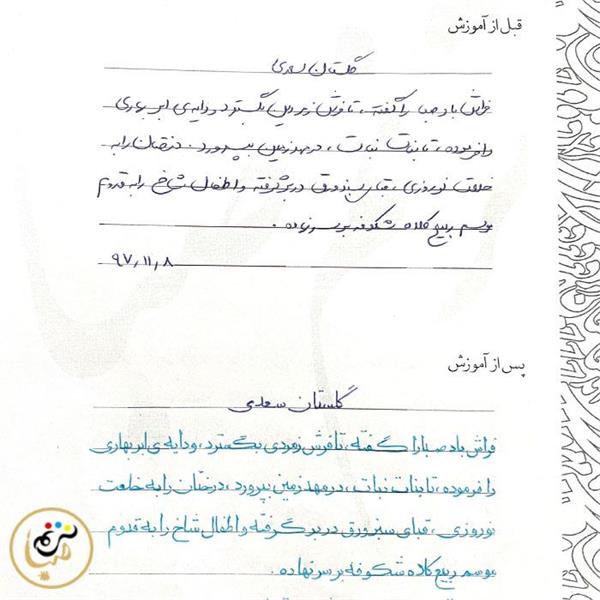 قبل از آموزش
گلستان سعدی
فراش باد صبا را گفته، تا فرش زمردین بگسترد و دایه‌ی ابر بهاری
را فرموده، تا بنات نبات، در مهد زمین بپرورد. درختان را به
خلعت نوروزی، قبای سبز ورق در بر گرفته و اطفال شاخ را به قدوم
موسم ربیع کلاه شکوفه بر سر نهاده.
۹۷٫۱۱٫۸
پس از آموزش
گلستان سعدی
فراش باد صبا را گفته، تا فرش زمردی بگسترد، و دایه‌ی ابر بهاری
را فرموده، تا بنات نبات، در مهد زمین بپرورد، درختان را به خلعت
نوروزی، قبای سبز ورق در بر گرفته و اطفال شاخ را به قدوم
موسم ربیع کلاه شکوفه بر سر نهاده.